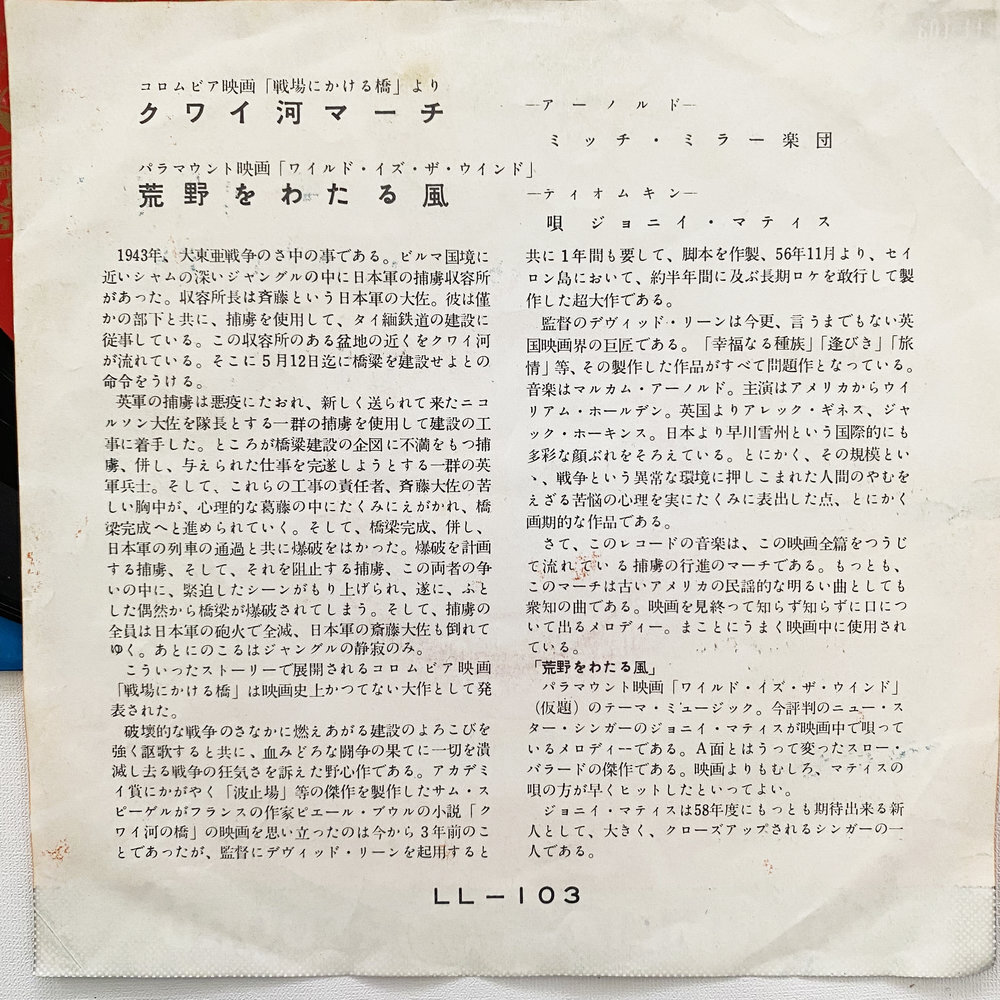 コロムビア映画「戦場にかける橋」より
クワイ河マーチ
―アーノルド―
ミッチ・ミラー楽団
パラマウント映画「ワイルド・イズ・ザ・ウインド」
荒野をわたる風
―ティオムキン―
唄 ジョニイ・マティス
1943年、大東亜戦争のさ中の事である。ビルマ国境に
近いシャムの深いジャングルの中に日本軍の捕虜収容所
があった。収容所長は斉藤という日本軍の大佐。彼は僅
かの部下と共に、捕虜を使用して、タイ緬鉄道の建設に
従事している。この収容所のある盆地の近くをクワイ河
が流れている。そこに5月12日迄に橋梁を建設せよとの
命令をうける。
英軍の捕虜は悪疫にたおれ、新しく送られて来たニコ
ルソン大佐を隊長とする一群の捕虜を使用して建設の工
事に着手した。ところが橋梁建設の企図に不満をもつ捕
虜、併し、与えられた仕事を完遂しようとする一群の英
軍兵士。そして、これらの工事の責任者、斉藤大佐の苦
しい胸中が、心理的な葛藤の中にたくみにえがかれ、橋
梁完成へと進められていく。そして、橋梁完成、併し、
日本軍の列車の通過と共に爆破をはかった。爆破を計画
する捕虜、そして、それを阻止する捕虜、この両者の争
いの中に、緊迫したシーンがもり上げられ、遂に、ふと
した偶然から橋梁が爆破されてしまう。そして、捕虜の
全員は日本軍の砲火で全滅、日本軍の斎藤大佐も倒れて
ゆく。あとにのこるはジャングルの静寂のみ。
こういったストーリーで展開されるコロムビア映画
「戦場にかける橋」は映画史上かつてない大作として発
表された。
破壊的な戦争のさなかに燃えあがる建設のよろこびを
強く謳歌すると共に、血みどろな闘争の果てに一切を潰
滅し去る戦争の狂気さを訴えた野心作である。アカデミ
イ賞にかがやく「波止場」等の傑作を製作したサム・ス
ピーゲルがフランスの作家ピエール・ブウルの小説「ク
ワイ河の橋」の映画を思い立ったのは今から3年前のこ
とであったが、監督にデヴィッド・リーンを起用すると
共に1年間も要して、脚本を作製、56年11月より、セイ
ロン島において、約半年間に及ぶ長期ロケを敢行して製
作した超大作である。
監督のデヴィッド・リーンは今更、言うまでもない英
国映画界の巨匠である。「幸福なる種族」「逢びき」「旅
情」等、その製作した作品がすべて問題作となっている。
音楽はマルカム・アーノルド。主演はアメリカからウイ
リアム・ホールデン。英国よりアレック・ギネス、ジャ
ック・ホーキンス。日本より早川雪州という国際的にも
多彩な顔ぶれをそろえている。とにかく、その規模とい
、戦争という異常な環境に押しこまれた人間のやむを
えざる苦悩の心理を実にたくみに表出した点、とにかく
画期的な作品である。
さて、このレコードの音楽は、この映画全篇をつうじ
て流れている捕虜の行進のマーチである。もっとも、
このマーチは古いアメリカの民謡的な明るい曲としても
衆知の曲である。映画を見終って知らず知らずに口につ
いて出るメロディー。まことにうまく映画中に使用され
ている。
「荒野をわたる風」
パラマウント映画「ワイルド・イズ・ザ・ウインド」
(仮題)のテーマ・ミュージック。今評判のニュー・ス
ター・シンガーのジョニイ・マティスが映画中で唄って
いるメロディーである。A面とはうって変ったスロー・
バラードの傑作である。映画よりもむしろ、マティスの
唄の方が早くヒットしたといってよい。
ジョニイ・マティスは58年度にもっとも期待出来る新
人として、大きく、クローズアップされるシンガーの一
人である。
LL－103